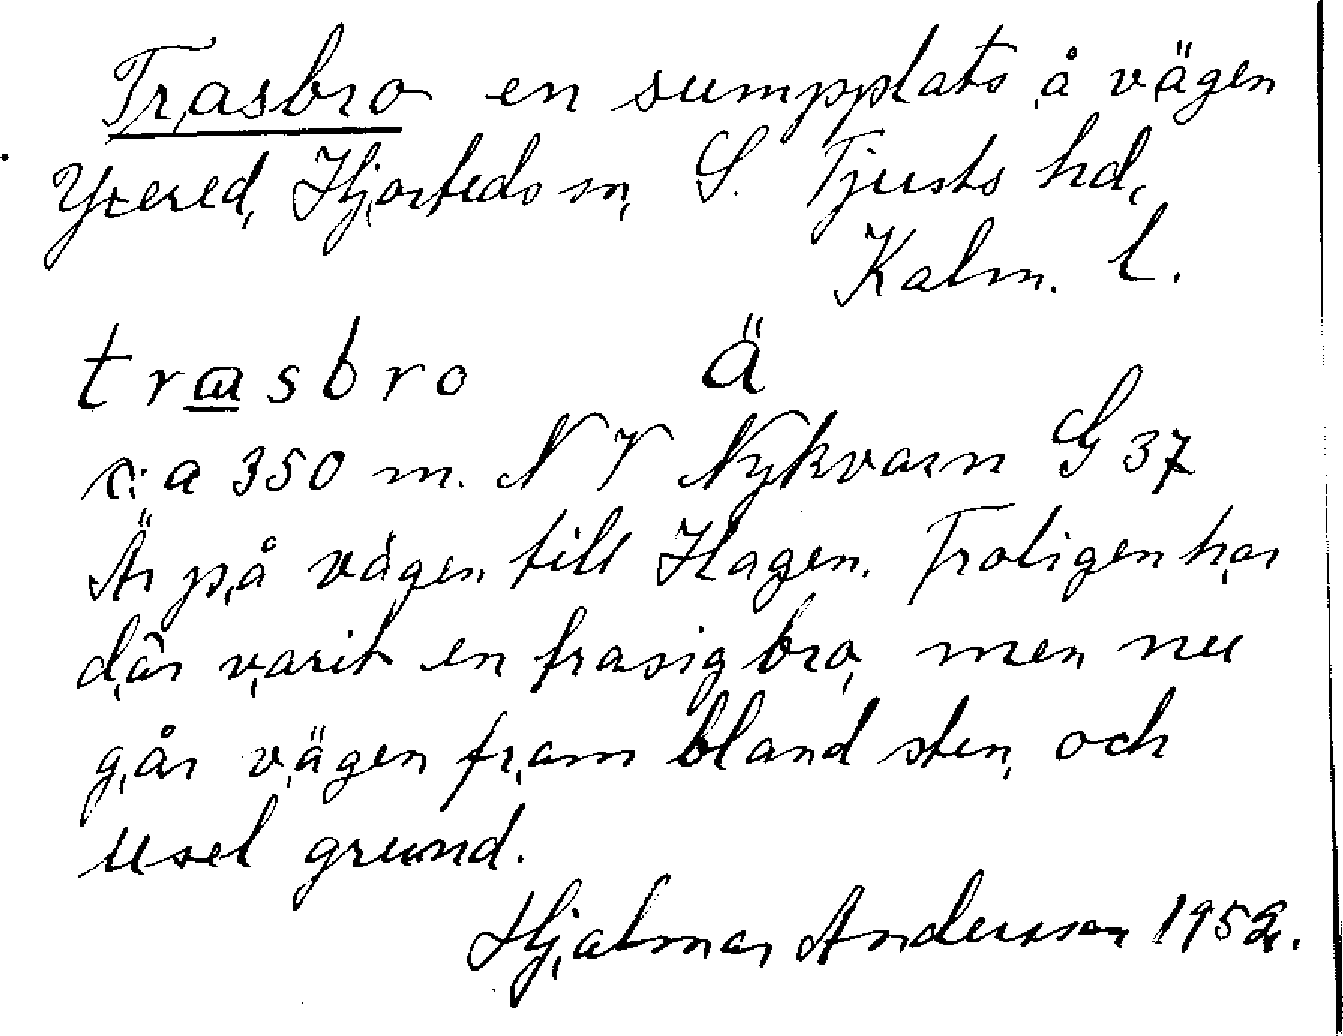 Trasbro en sumpplats å vägen
Yxered, Hjorteds sn, S. Tjusts hd,
Kalm. l.
trasbro Ä
c:a 350 m. NV Nykvarn G 37
Är på vägen till Hagen. Troligen har
där varit en trasig bro, men nu
går vägen fram bland sten, och
usel grund.
Hjalmar Andersson 1952.